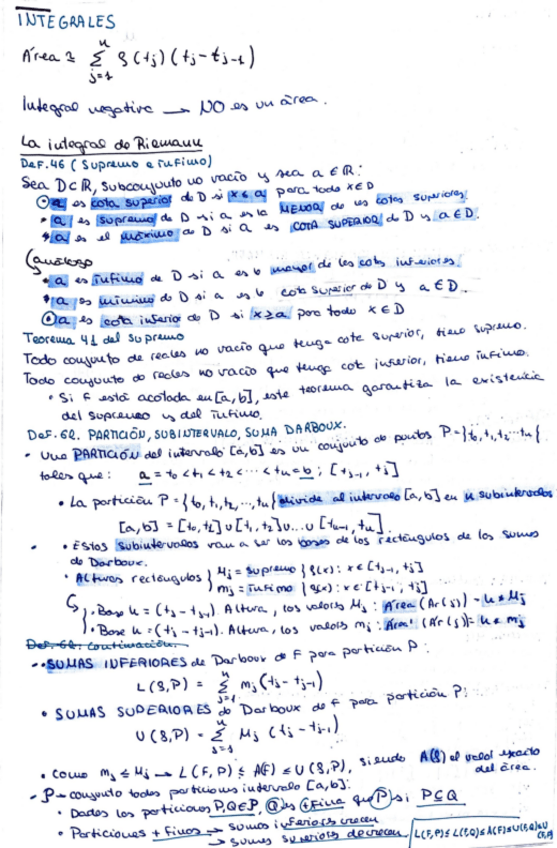 INTEGRALES
Área ≈ Σ_{j=1}^{n} f(tj)(tj - tj-1)
Integral negativa → NO es un área.
La integral de Riemann
Def. 46 (Supremo e ínfimo)
Sea D⊂R, subconjunto no vacío y sea a ∈ R:
a es cota superior de D si x ≤ a para todo x∈D
• a es supremo de D si a es la MENOR de las cotas superiores.
• a es el máximo de D si a es COTA SUPERIOR de D y a∈D.
(análogo
• a es ínfimo de D si a es la mayor de las cotas inferiores.
• a es mínimo de D si a es la cota superior de D y a∈D.
a es cota inferior de D si x≥a para todo x∈D
Teorema 41 del supremo
Todo conjunto de reales no vacío que tenga cota superior, tiene supremo.
Todo conjunto de reales no vacío que tenga cota inferior, tiene ínfimo.
• Si f está acotada en [a,b], este teorema garantiza la existencia
del supremo y del ínfimo.
Def. 62. PARTICIÓN, SUBINTERVALO, SUMA DARBOUX.
• Una PARTICIÓN del intervalo [a,b] es un conjunto de puntos P={t0,t1,t2...tn}
tales que: a = t0 < t1 < t2 < ... < tn = b ; [tj-1, tj]
• La partición P = {t0,t1,t2,...,tn} divide al intervalo [a,b] en n subintervalos
[a,b] = [t0,t1] ∪ [t1,t2] ∪ ... ∪ [tn-1, tn].
• Estos subintervalos van a ser las bases de los rectángulos de las sumas
de Darboux.
• Alturas rectángulos { Mj = supremo {f(x): x∈[tj-1, tj]
mj = ínfimo {f(x): x∈[tj-1, tj]
• Base h = (tj - tj-1). Altura, los valores Mj : Área (Ar(j)) = h * Mj
• Base h = (tj - tj-1). Altura, los valores mj : Área (Ar(j)) = h * mj
Def. 62: Continuación.
• SUMAS INFERIORES de Darboux de F para partición P:
L(f,P) = Σ_{j=1}^{n} mj (tj - tj-1)
• SUMAS SUPERIORES de Darboux de f para partición P:
U(f,P) = Σ_{j=1}^{n} Mj (tj - tj-1)
• Como mj ≤ Mj → L(F,P) ≤ A(F) ≤ U(f,P), siendo A(f) el valor exacto
del área.
- P → conjunto todas particiones intervalo [a,b]:
• Dadas las particiones P,Q∈P, Q es + fina que P si P⊆Q
• Particiones + finas → sumas inferiores crecen
→ sumas superiores decrecen.
L(F,P)≤L(F,Q)≤A(F)≤U(F,Q)≤U(F,P)